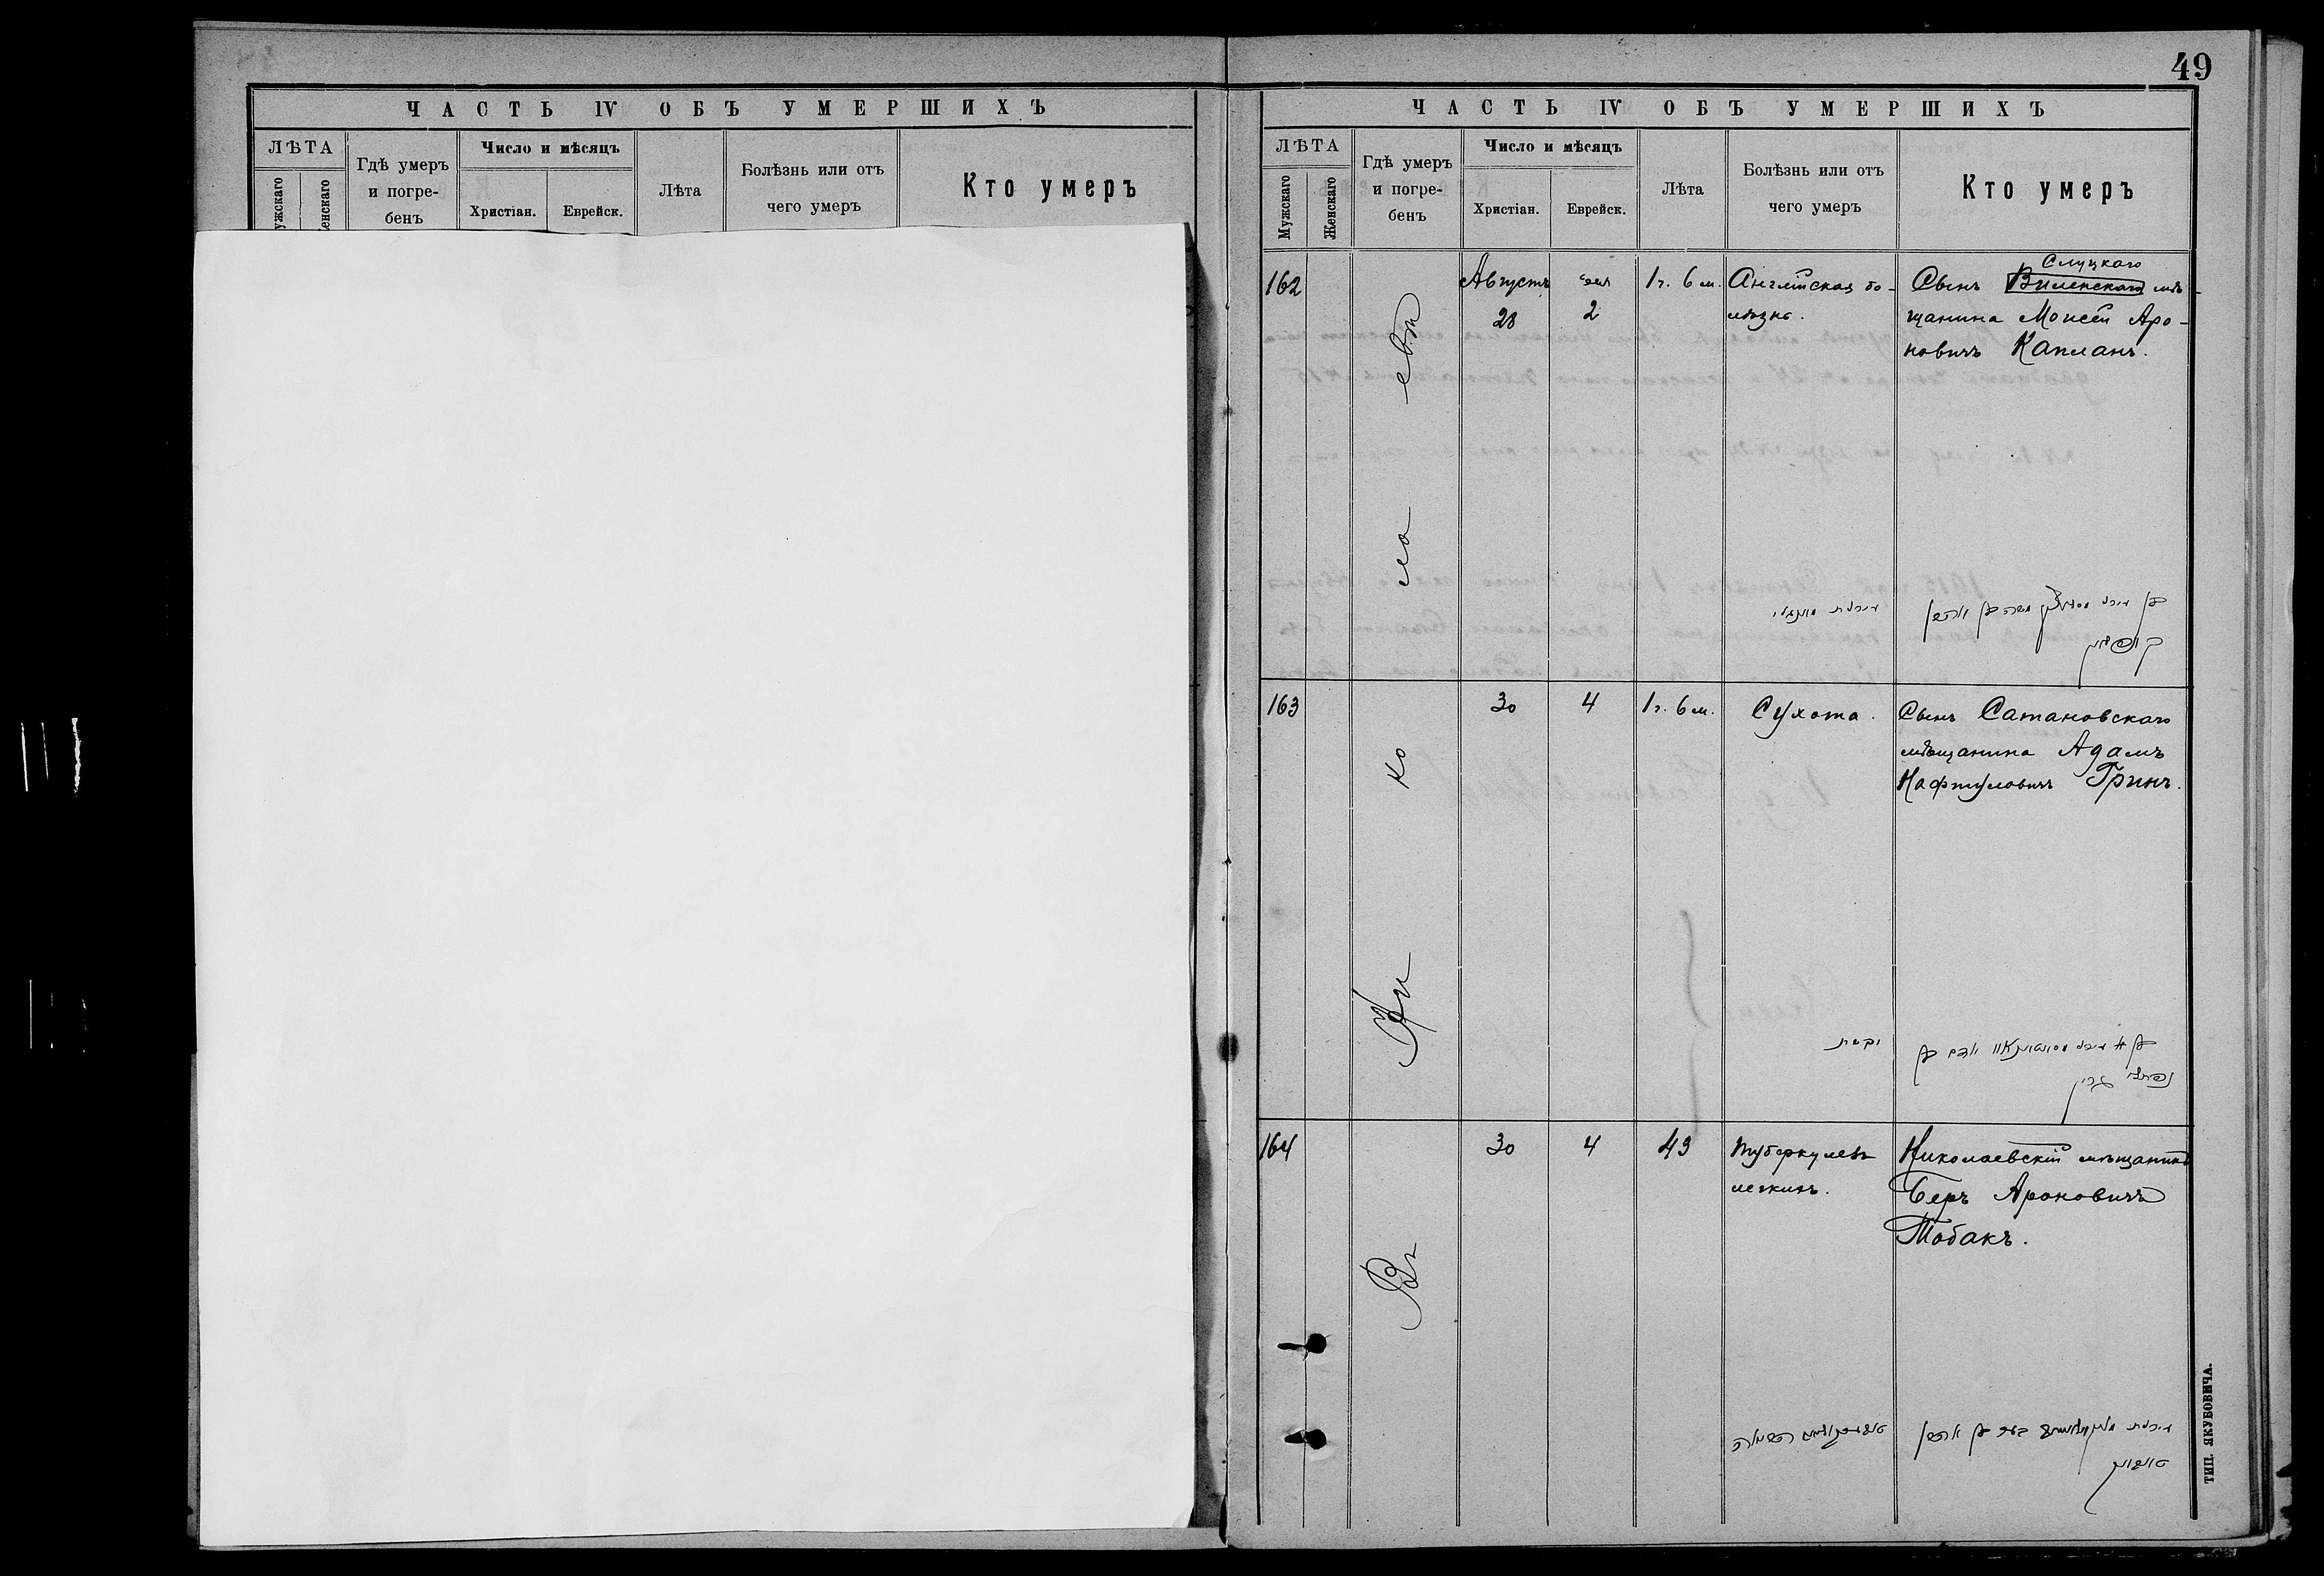 ЧАСТЬ IV ОБЪ УМЕРШИХЪ
ЛѢТА
ужскаго
енскаго
Гдѣ умеръ
и погре-
бенъ
Число и мѣсяцъ
Христіан.
Еврейск.
Лѣта
Болѣзнь или отъ
чего умеръ
Кто умеръ
49
ЧАСТЬ IV ОБЪ УМЕРШИХЪ
ЛѢТА
Мужскаго
Женскаго
Гдѣ умеръ
и погре-
бенъ
Число и мѣсяцъ
Христіан.
Еврейск.
Лѣта
Болѣзнь или отъ
чего умеръ
Кто умеръ
Въ Николаевѣ
162
Августъ
28
2
1 г. 6 м.
Англійская бо-
лѣзнь.
Слуцкаго
Сынъ Виленскаго мѣ-
щанина Моисей Аро-
новичъ Капланъ.
163
30
4
1 г. 6 м.
Сухота.
Сынъ Сатановскаго
мѣщанина Адамъ
Нафтуловичъ Гринъ.
164
30
4
43
Туберкулезъ
легкихъ.
Николаевскій мѣщанинъ
Беръ Ароновичъ
Тобакъ.
ТИП. ЯКУБОВИЧА.